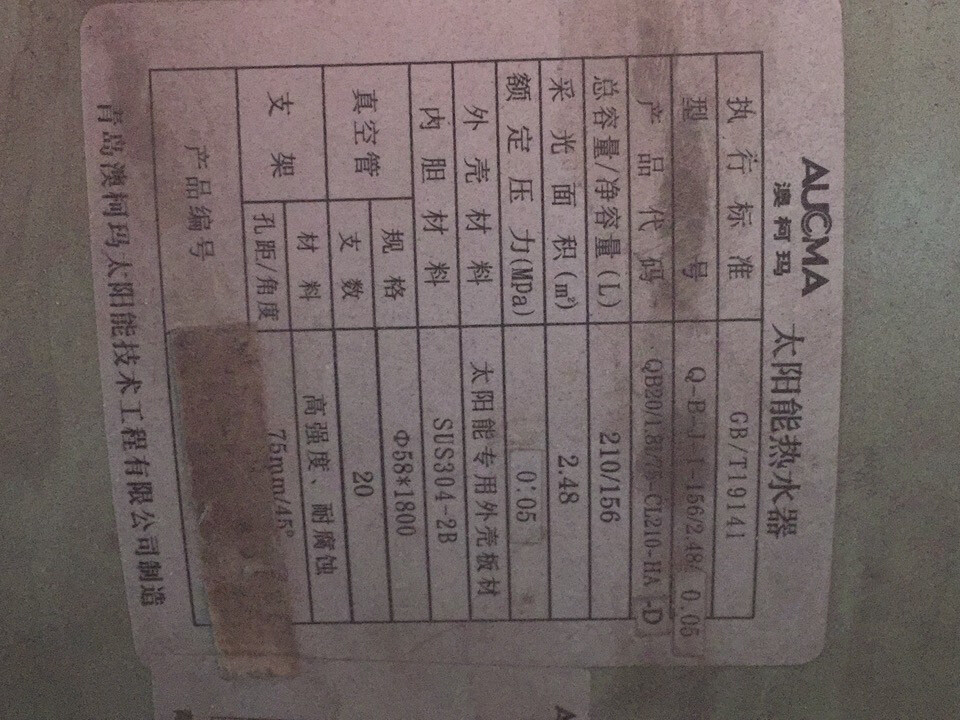 AUCMA
澳柯玛 太阳能热水器
执行标准 GB/T19141
型号 Q-B-J-1-156/2.48/0.05
产品代码 QB20/1.8B/75-CL210-HA-D
总容量/净容量(L) 210/156
采光面积(m²) 2.48
额定压力(MPa) 0.05
外壳材料 太阳能专用外壳板材
内胆材料 SUS304-2B
真空管 规格 Φ58*1800
支数 20
支架 材料 高强度、耐腐蚀
孔距/角度 75mm/45°
产品编号
青岛澳柯玛太阳能技术工程有限公司制造